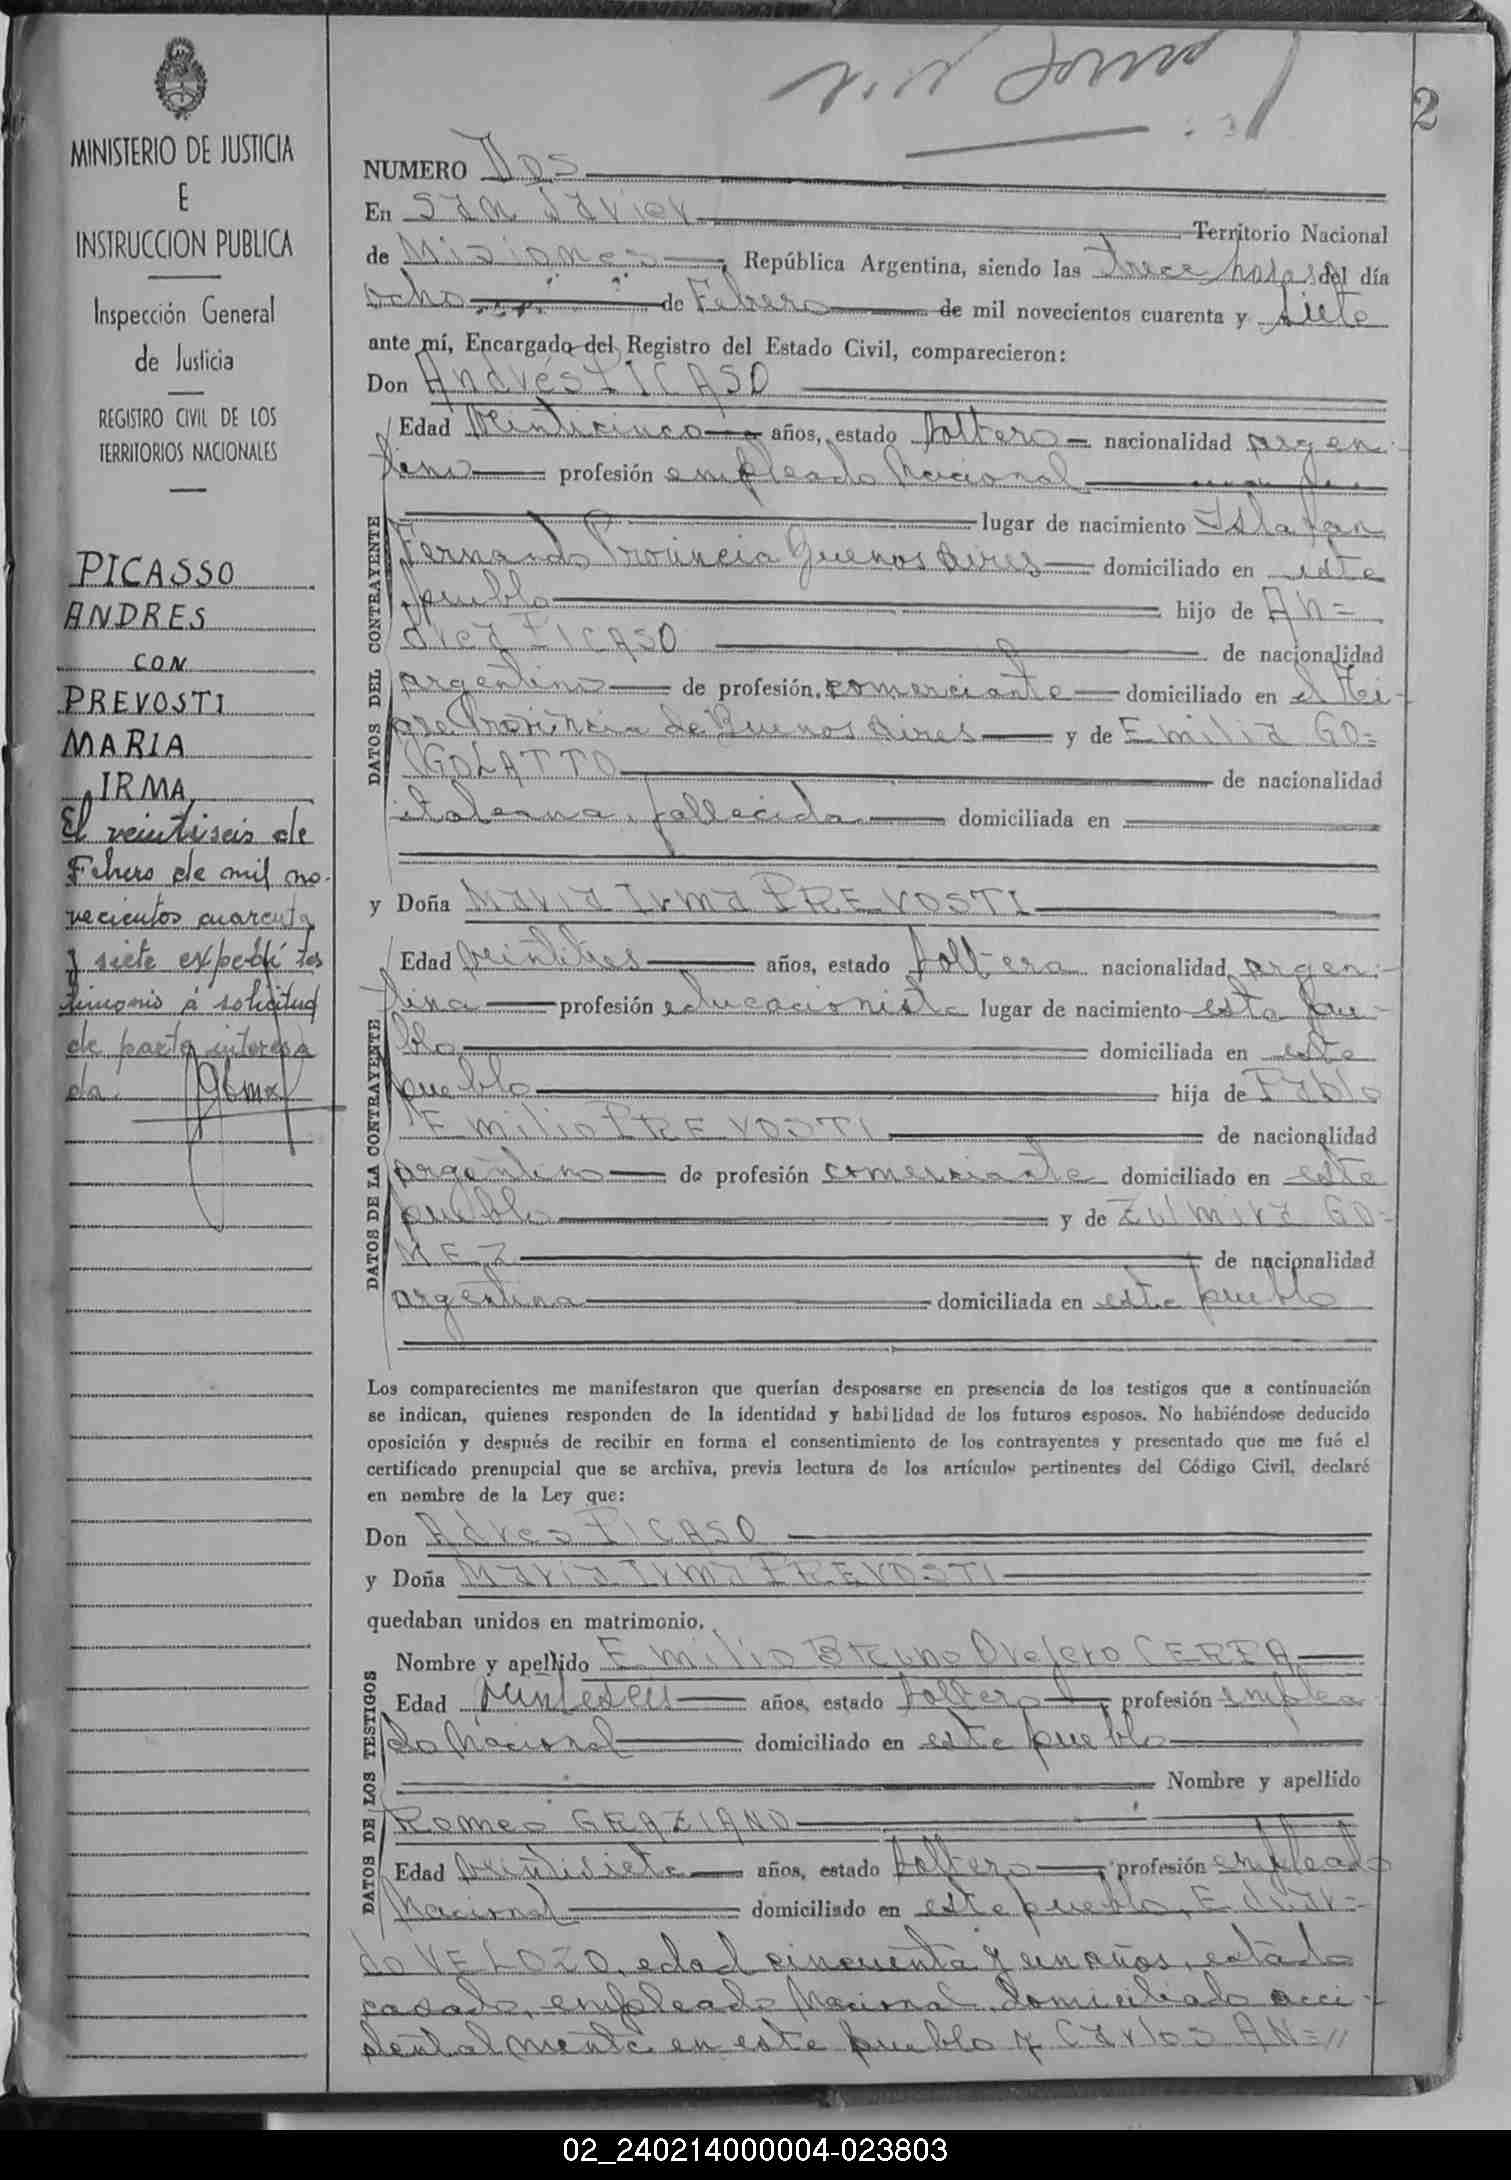 2
MINISTERIO DE JUSTICIA
E
INSTRUCCION PUBLICA
Inspección General
de Justicia
REGISTRO CIVIL DE LOS
TERRITORIOS NACIONALES
PICASSO
ANDRES
CON
PREVOSTI
MARIA
IRMA
El veintiseis de
Febrero de mil no-
vecientos cuarenta
y siete expedí tes
timonio á solicitud
de parte interesa
da.
NUMERO Dos
En San Javier Territorio Nacional
de Misiones, República Argentina, siendo las trece horas del día
ocho de Febrero de mil novecientos cuarenta y siete
ante mí, Encargado del Registro del Estado Civil, comparecieron:
Don Andrés PICASO
DATOS DEL CONTRAYENTE
Edad veinticinco años, estado soltero nacionalidad argen-
tino profesión empleado Nacional
lugar de nacimiento Isla San
Fernando Provincia Buenos Aires domiciliado en este
pueblo hijo de An=
drea PICASO de nacionalidad
argentino de profesión comerciante domiciliado en el Ti-
gre Provincia de Buenos Aires y de Emilia GO=
GOLATTO de nacionalidad
italiana, fallecida domiciliada en
y Doña Maria Irma PREVOSTI
DATOS DE LA CONTRAYENTE
Edad veintitres años, estado soltera nacionalidad argen-
tina profesión educacionista lugar de nacimiento este pue-
blo domiciliada en este
pueblo hija de Pablo
Emilio PREVOSTI de nacionalidad
argentino de profesión comerciante domiciliado en este
pueblo y de Zulmira GO=
MEZ de nacionalidad
argentina domiciliada en este pueblo
Los comparecientes me manifestaron que querían desposarse en presencia de los testigos que a continuación
se indican, quienes responden de la identidad y habilidad de los futuros esposos. No habiéndose deducido
oposición y después de recibir en forma el consentimiento de los contrayentes y presentado que me fué el
certificado prenupcial que se archiva, previa lectura de los artículos pertinentes del Código Civil, declaré
en nombre de la Ley que:
Don Adres PICASO
y Doña Maria Irma PREVOSTI
quedaban unidos en matrimonio.
DATOS DE LOS TESTIGOS
Nombre y apellido Emilio Bruno Orejero CERPA
Edad años, estado soltero, profesión emplea
do Nacional domiciliado en este pueblo
Nombre y apellido
Romeo GRAZIANO
Edad veintisiete años, estado soltero, profesión empleado
Nacional domiciliado en este pueblo, Eduar=
do VELOZO, edad cincuenta y un años, estado
casado, empleado Nacional, domiciliado acci-
dentalmente en este pueblo y Carlos AN=//
02_240214000004-023803